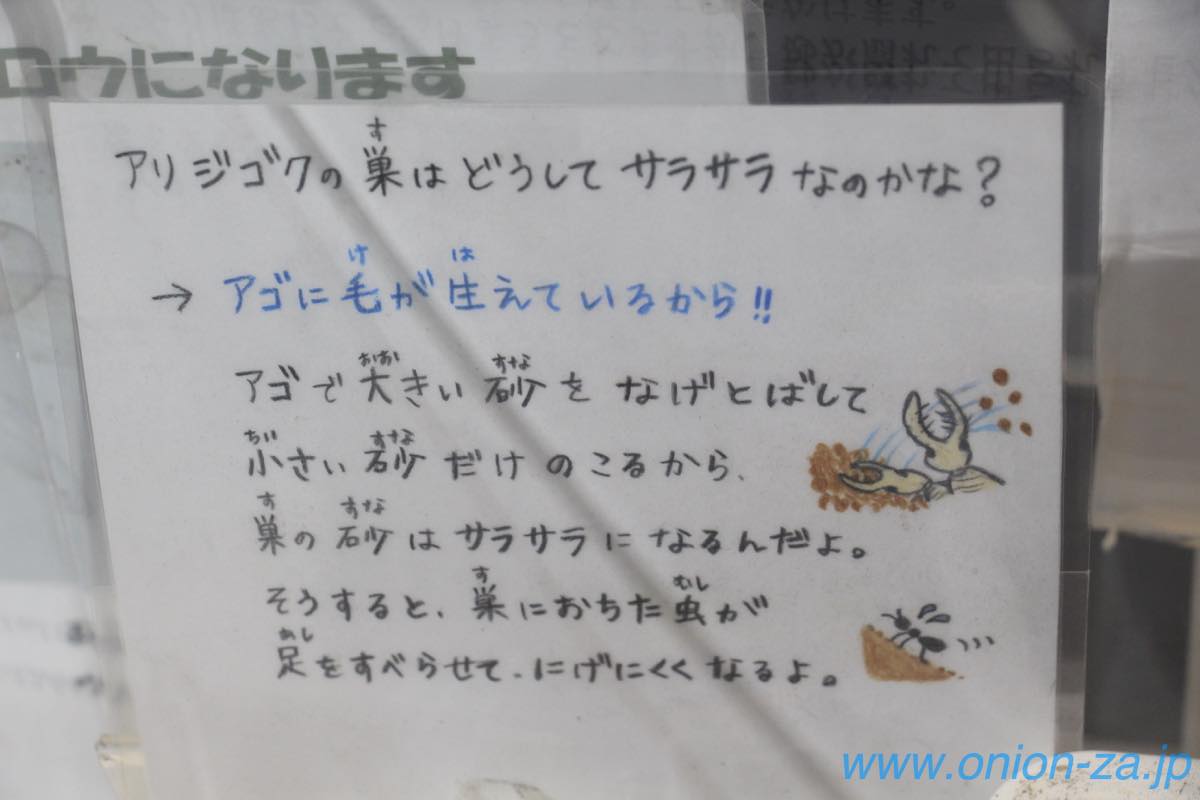 ロウになります
アリジゴクの巣はどうしてサラサラなのかな?
→ アゴに毛が生えているから!!
アゴで大きい砂をなげとばして
小さい砂だけのこるから、
巣の砂はサラサラになるんだよ。
そうすると、巣におちた虫が
足をすべらせて、にげにくくなるよ。
www.onion-za.jp